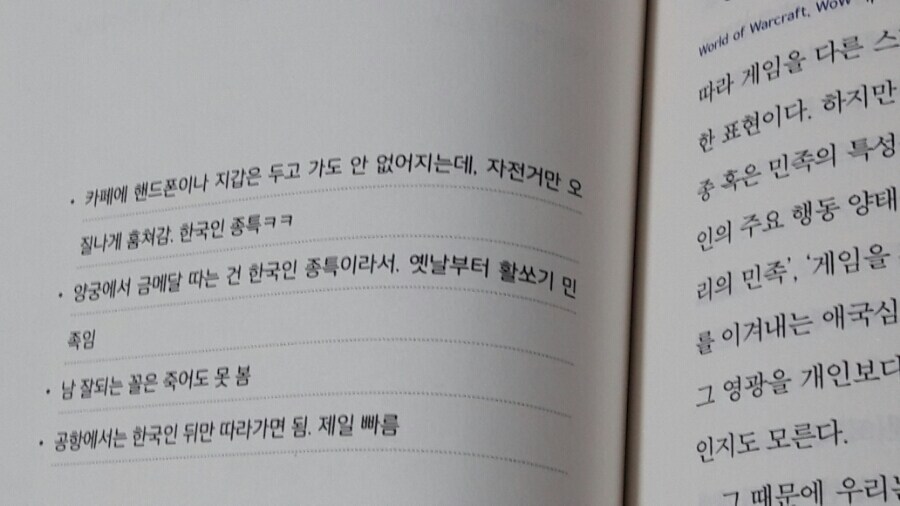 • 카페에 핸드폰이나 지갑은 두고 가도 안 없어지는데, 자전거만 오
질나게 훔쳐감. 한국인 종특ㅋㅋ
• 양궁에서 금메달 따는 건 한국인 종특이라서. 옛날부터 활쏘기 민
족임
• 남 잘되는 꼴은 죽어도 못 봄
• 공항에서는 한국인 뒤만 따라가면 됨. 제일 빠름
World of Warcraft, WoW
따라 게임을 다른
한 표현이다. 하지만
종 혹은 민족의 특성
인의 주요 행동 양태
리의 민족’, ‘게임을
를 이겨내는 애국심
그 영광을 개인보다
인지도 모른다.
그 때문에 우리는